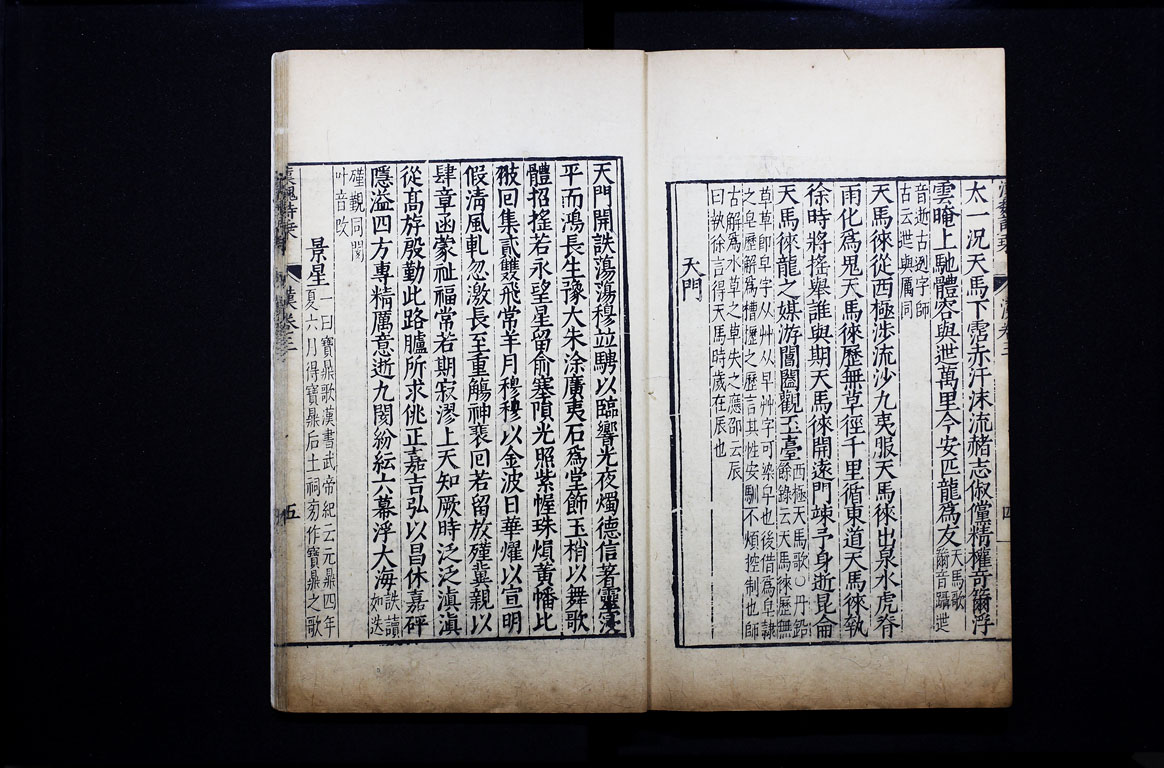 太一況天馬下霑赤汗沫流赭志俶儻精權竒籋浮
雲晻上馳體容與迣萬里今安匹龍爲友天馬歌
籋音躡迣
音逝古迾字師
古云迣與厲同
天馬徠從西極涉流沙九夷服天馬徠出泉水虎脊
兩化爲鬼天馬徠歷無草徑千里循東道天馬徠執
徐時將搖舉誰與期天馬徠開遠門竦予身逝昆侖
天馬徠龍之媒游閶闔觀玉臺西極天馬歌○丹鉛
餘錄云天馬徠歷無
草草即皁字从艸从早艸字可染皁也後借爲皁隸
之皁歷解爲槽櫪之歷言其性安馴不煩控制也師
古解爲水草之草失之應邵云辰
曰執徐言得天馬時歲在辰也
天門
天門開詄蕩蕩穆竝騁以臨響光夜燭德信著靈寖
平而鴻長生豫大朱涂廣夷石爲堂飾玉梢以舞歌
體招搖若永望星留俞塞隕光照紫幄珠熉黃幡比
翄回集貳雙飛常羊月穆穆以金波日華燿以宣明
假清風軋忽激長至重觴神裴回若留放殣冀親以
肆章函蒙祉福常若期寂漻上天知厥時泛泛滇滇
從髙斿殷勤此路臚所求佻正嘉吉弘以昌休嘉砰
隱溢四方專精厲意逝九閡紛紜六幕浮大海詄讀
如迭
殣覲同閡
叶音改
景星一曰寶鼎歌漢書武帝紀云元鼎四年
夏六月得寶鼎后土祠旁作寶鼎之歌
漢 卷三
五